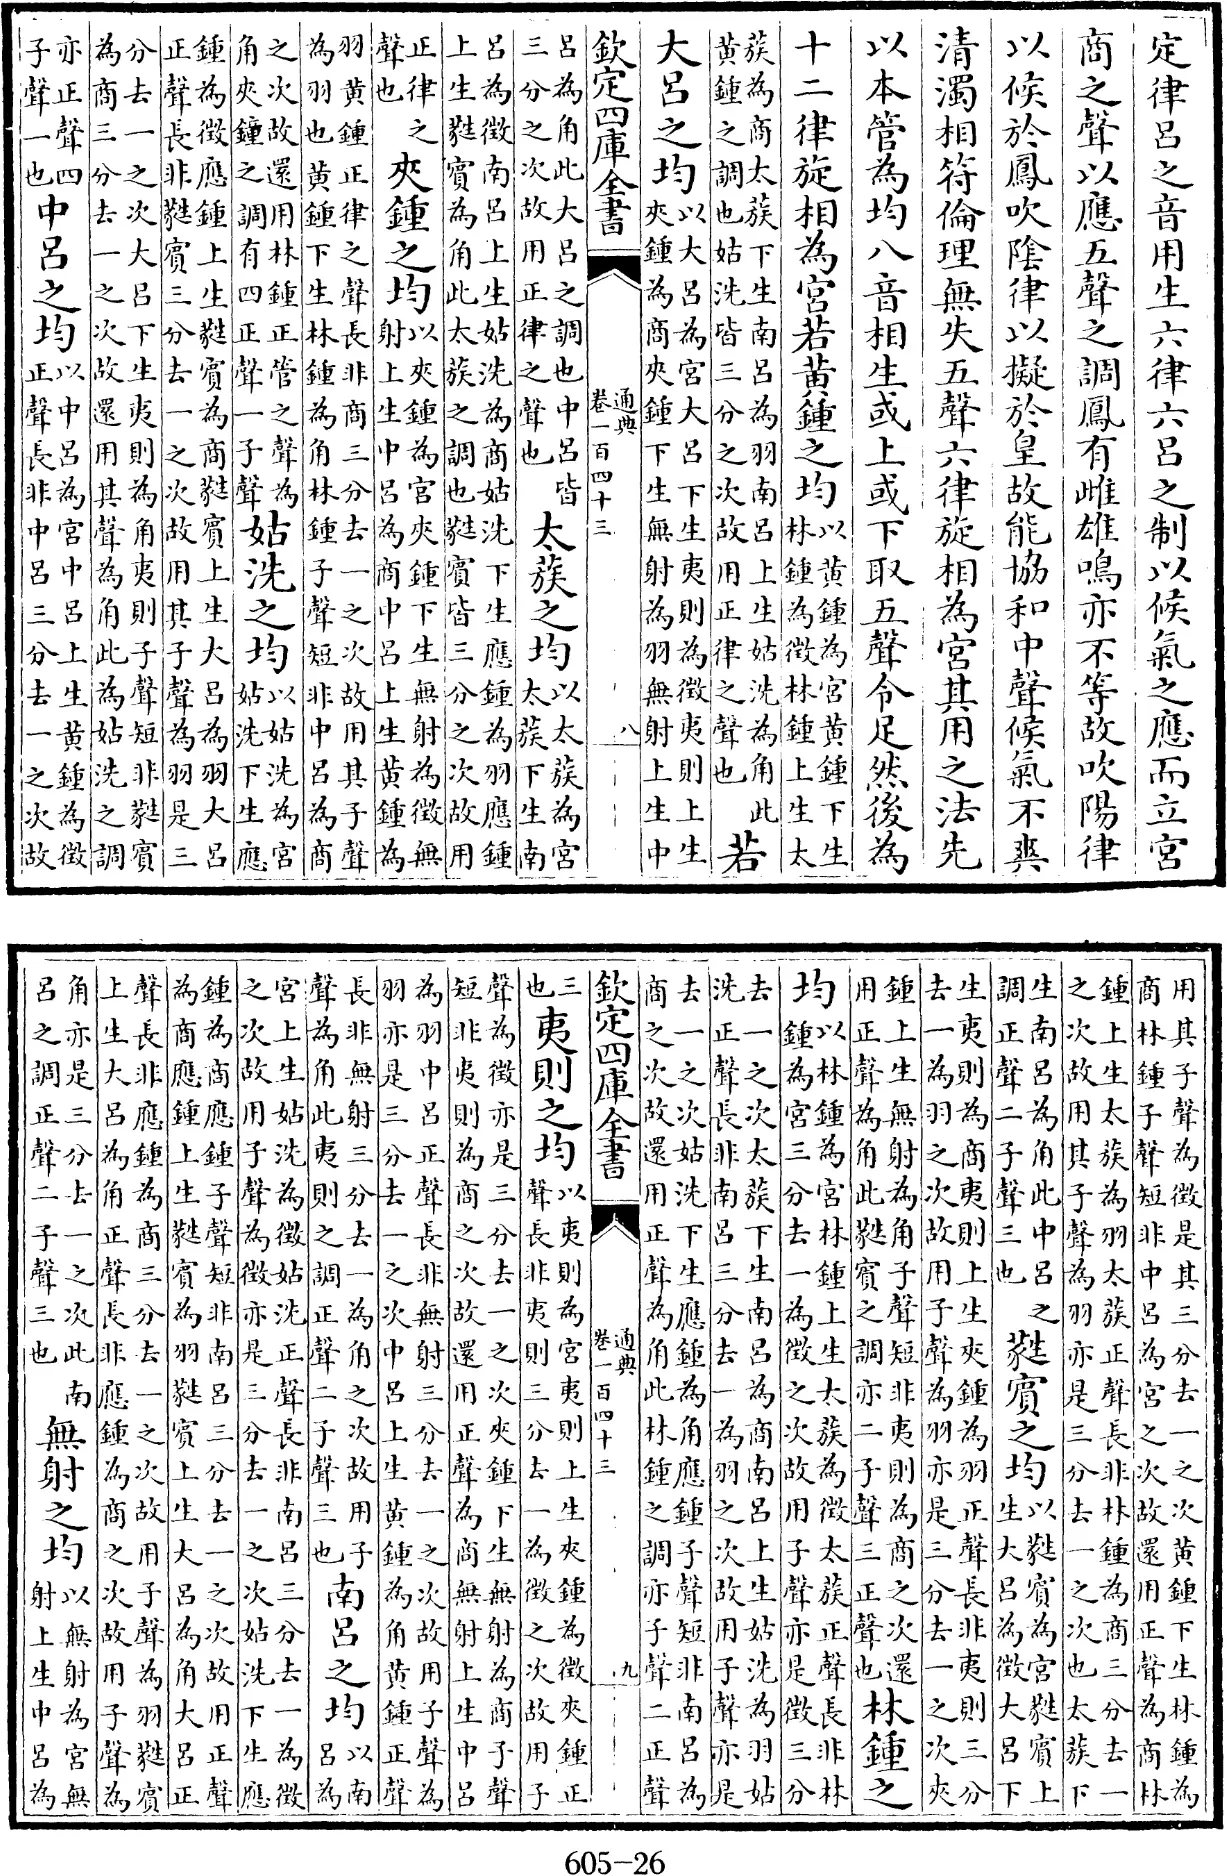 定律呂之音用生六律六呂之制以候氣之應而立宮
商之聲以應五聲之調鳳有雌雄鳴亦不等故吹陽律
以候於鳳吹陰律以擬於皇故能協和中聲候氣不爽
清濁相符倫理無失五聲六律旋相為宮其用之法先
以本管為均八音相生或上或下取五聲令足然後為
十二律旋相為宮若黃鍾之均以黃鍾為宮黃鍾下生林鍾為徵林鍾上生太
蔟為商太蔟下生南呂為羽南呂上生姑洗為角此黃鍾之調也姑洗皆三分之次故用正律之聲也若
大呂之均以大呂為宮大呂下生夷則為徵夷則上生夾鍾為商夾鍾下生無射為羽無射上生中
欽定四庫全書 通典 卷一百四十三 八
呂為角此大呂之調也中呂皆三分之次故用正律之聲也太蔟之均以太蔟為宮太蔟下生南
呂為徵南呂上生姑洗為商姑洗下生應鍾為羽應鍾上生蕤賓為角此太蔟之調也蕤賓皆三分之次故用
正律之聲也夾鍾之均以夾鍾為宮夾鍾下生無射為徵無射上生中呂為商中呂上生黃鍾為
羽黃鍾正律之聲長非商三分去一之次故用其子聲為羽也黃鍾下生林鍾為角林鍾子聲短非中呂為商
之次故還用林鍾正管之聲為角夾鐘之調有四正聲一子聲姑洗之均以姑洗為宮姑洗下生應
鍾為徵應鍾上生蕤賓為商蕤賓上生大呂為羽大呂正聲長非蕤賓三分去一之次故用其子聲為羽是三
分去一之次大呂下生夷則為角夷則子聲短非蕤賓為商三分去一之次故還用其聲為角此為姑洗之調
亦正聲四子聲一也中呂之均以中呂為宮中呂上生黃鍾為徵正聲長非中呂三分去一之次故
用其子聲為徵是其三分去一之次黃鍾下生林鍾為商林鍾子聲短非中呂為宮之次故還用正聲為商林
鍾上生太蔟為羽太蔟正聲長非林鍾為商三分去一之次故用其子聲為羽亦是三分去一之次也太蔟下
生南呂為角此中呂之調正聲二子聲三也蕤賓之均以蕤賓為宮蕤賓上生大呂為徵大呂下
生夷則為商夷則上生夾鍾為羽正聲長非夷則三分去一為羽之次故用子聲為羽亦是三分去一之次夾
鍾上生無射為角子聲短非夷則為商之次還用正聲為角此蕤賓之調亦二子聲三正聲也林鍾之
均以林鍾為宮林鍾上生太蔟為徵太蔟正聲長非林鍾為宮三分去一為徵之次故用子聲亦是徵三分
去一之次太蔟下生南呂為商南呂上生姑洗為羽姑洗正聲長非南呂三分去一為羽之次故用子聲亦是
去一之次姑洗下生應鍾為角應鍾子聲短非南呂為商之次故還用正聲為角此林鍾之調亦子聲二正聲
欽定四庫全書 通典 卷一百四十三 九
三也夷則之均以夷則為宮夷則上生夾鍾為徵夾鍾正聲長非夷則三分去一為徵之次故用子
聲為徵亦是三分去一之次夾鍾下生無射為商子聲短非夷則為商之次故還用正聲為商無射上生中呂
為羽中呂正聲長非無射三分去一之次故用子聲為羽亦是三分去一之次中呂上生黃鍾為角黃鍾正聲
長非無射三分去一為角之次故用子聲為角此夷則之調正聲二子聲三也南呂之均以南呂為
宮上生姑洗為徵姑洗正聲長非南呂三分去一為徵之次故用子聲為徵亦是三分去一之次姑洗下生應
鍾為商應鍾子聲短非南呂三分去一之次故用正聲為商應鍾上生蕤賓為羽蕤賓上生大呂為角大呂正
聲長非應鍾為商三分去一之次故用子聲為羽蕤賓上生大呂為角正聲長非應鍾為商之次故用子聲為
角亦是三分去一之次此南呂之調正聲二子聲三也無射之均以無射為宮無射上生中呂為
605-26